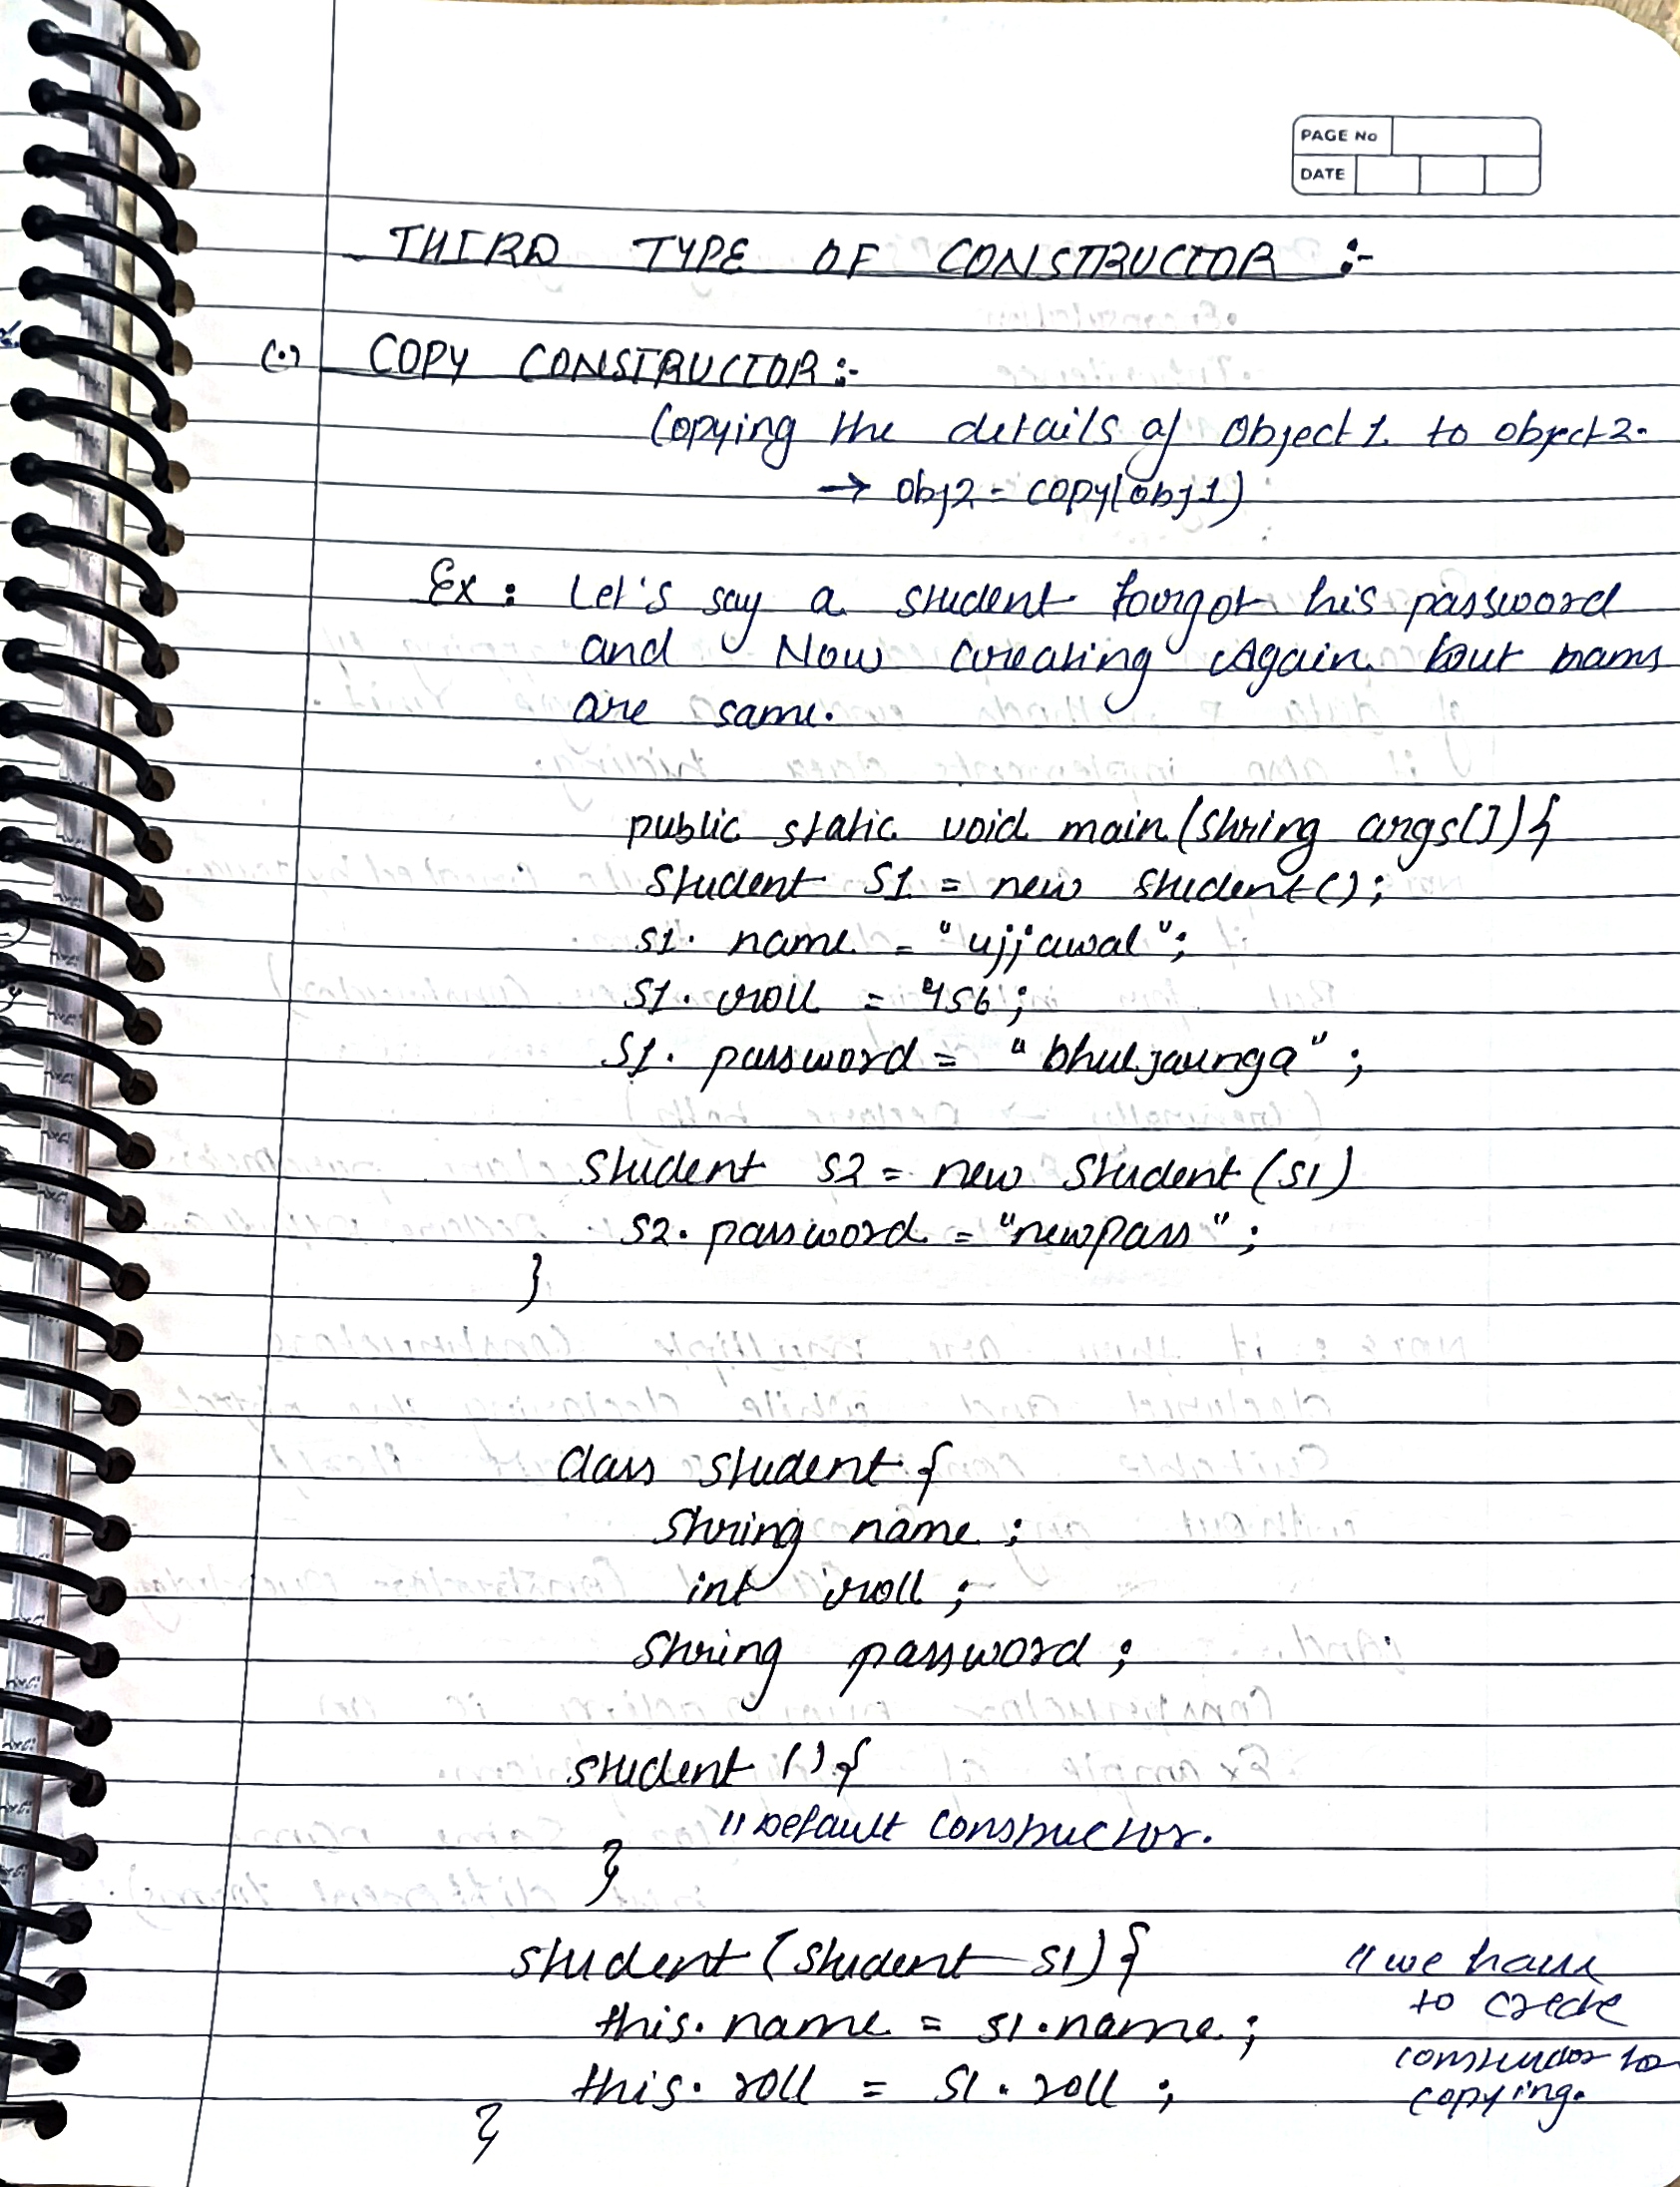 PAGE No
DATE
THIRD TYPE OF CONSTRUCTOR :-
(•) COPY CONSTRUCTOR :-
Copying the details of Object 1 to object 2.
→ Obj2 = copy(obj1)
Ex : Let's say a student forgot his password
and Now creating Again but
are same.
public static void main (string args[]) {
Student S1 = new student();
s1. name = "ujjawal";
S1. roll = 456;
S1. password = "bhuljaunga";
Student s2 = new Student (s1)
s2. password = "newpass";
}
class student {
string name ;
int roll ;
string password ;
student () {
// Default constructor.
}
student (student s1) { // we have
this. name = s1.name ; to
this. roll = s1. roll ; copying.
}